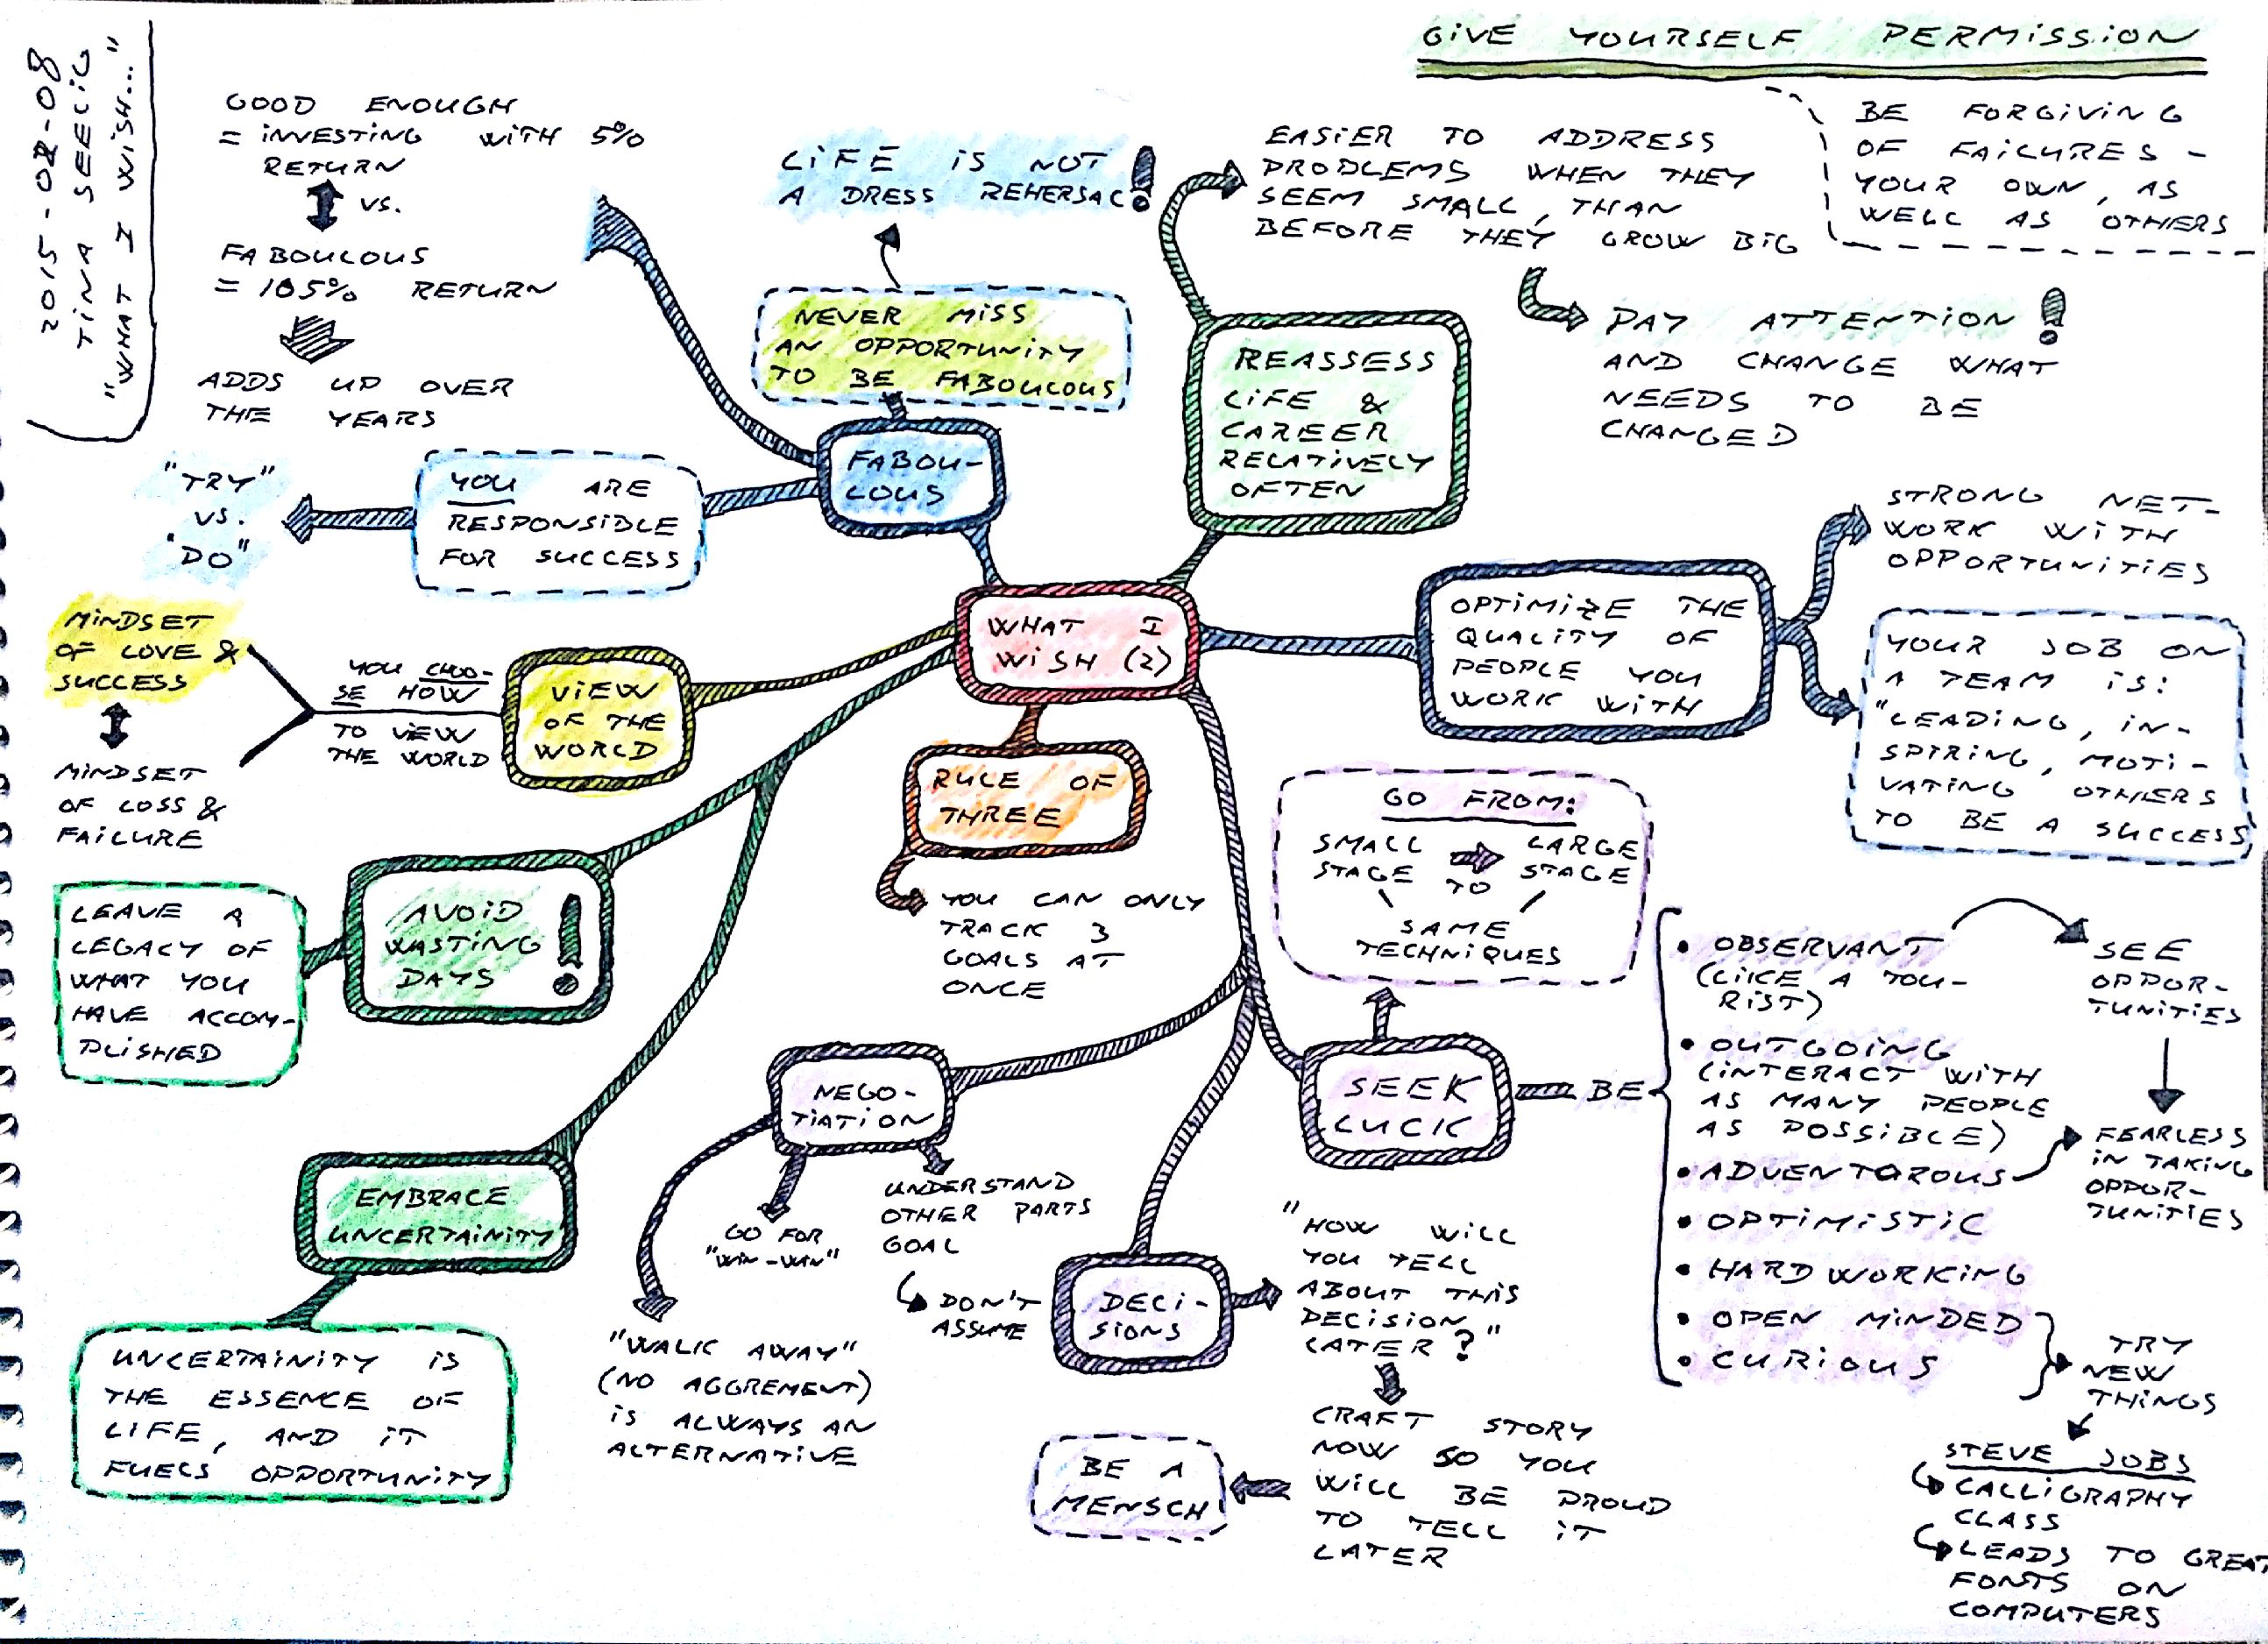 2015-02-08
TINA SEELIG
"WHAT I WISH..."
GIVE YOURSELF PERMISSION
BE FORGIVING
OF FAILURES -
YOUR OWN, AS
WELL AS OTHERS
GOOD ENOUGH
= INVESTING WITH 5%
RETURN
VS.
FABOULOUS
= 105% RETURN
ADDS UP OVER
THE YEARS
LIFE IS NOT
A DRESS REHERSAL!
NEVER MISS
AN OPPORTUNITY
TO BE FABOULOUS
FABOU-
LOUS
YOU ARE
RESPONSIBLE
FOR SUCCESS
"TRY"
VS.
"DO"
EASIER TO ADDRESS
PROBLEMS WHEN THEY
SEEM SMALL, THAN
BEFORE THEY GROW BIG
PAY ATTENTION!
AND CHANGE WHAT
NEEDS TO BE
CHANGED
REASSESS
LIFE &
CAREER
RELATIVELY
OFTEN
WHAT I
WISH (2)
OPTIMIZE THE
QUALITY OF
PEOPLE YOU
WORK WITH
STRONG NET-
WORK WITH
OPPORTUNITIES
YOUR JOB ON
A TEAM IS:
"LEADING, IN-
SPIRING, MOTI-
VATING OTHERS
TO BE A SUCCESS
VIEW
OF THE
WORLD
YOU CHOO-
SE HOW
TO VIEW
THE WORLD
MINDSET
OF LOVE &
SUCCESS
MINDSET
OF LOSS &
FAILURE
RULE OF
THREE
YOU CAN ONLY
TRACK 3
GOALS AT
ONCE
AVOID
WASTING
DAYS!
LEAVE A
LEGACY OF
WHAT YOU
HAVE ACCOM-
PLISHED
EMBRACE
UNCERTAINITY
UNCERTAINITY IS
THE ESSENCE OF
LIFE, AND IT
FUELS OPPORTUNITY
NEGO-
TIATION
"WALK AWAY"
(NO AGGREMENT)
IS ALWAYS AN
ALTERNATIVE
GO FOR
"WIN-WIN"
UNDERSTAND
OTHER PARTS
GOAL
DON'T
ASSUME
DECI-
SIONS
"HOW WILL
YOU TELL
ABOUT THIS
DECISION
LATER?"
CRAFT STORY
NOW SO YOU
WILL BE PROUD
TO TELL IT
LATER
BE A
MENSCH
SEEK
LUCK
GO FROM:
SMALL STAGE TO LARGE STAGE
SAME
TECHNIQUES
BE
• OBSERVANT
(LIKE A TOU-
RIST)
• OUTGOING
(INTERACT WITH
AS MANY PEOPLE
AS POSSIBLE)
• ADVENTOROUS
• OPTIMISTIC
• HARD WORKING
• OPEN MINDED
• CURIOUS
SEE
OPPOR-
TUNITIES
FEARLESS
IN TAKING
OPPOR-
TUNITIES
TRY
NEW
THINGS
STEVE JOBS
CALLIGRAPHY
CLASS
LEADS TO GREAT
FONTS ON
COMPUTERS